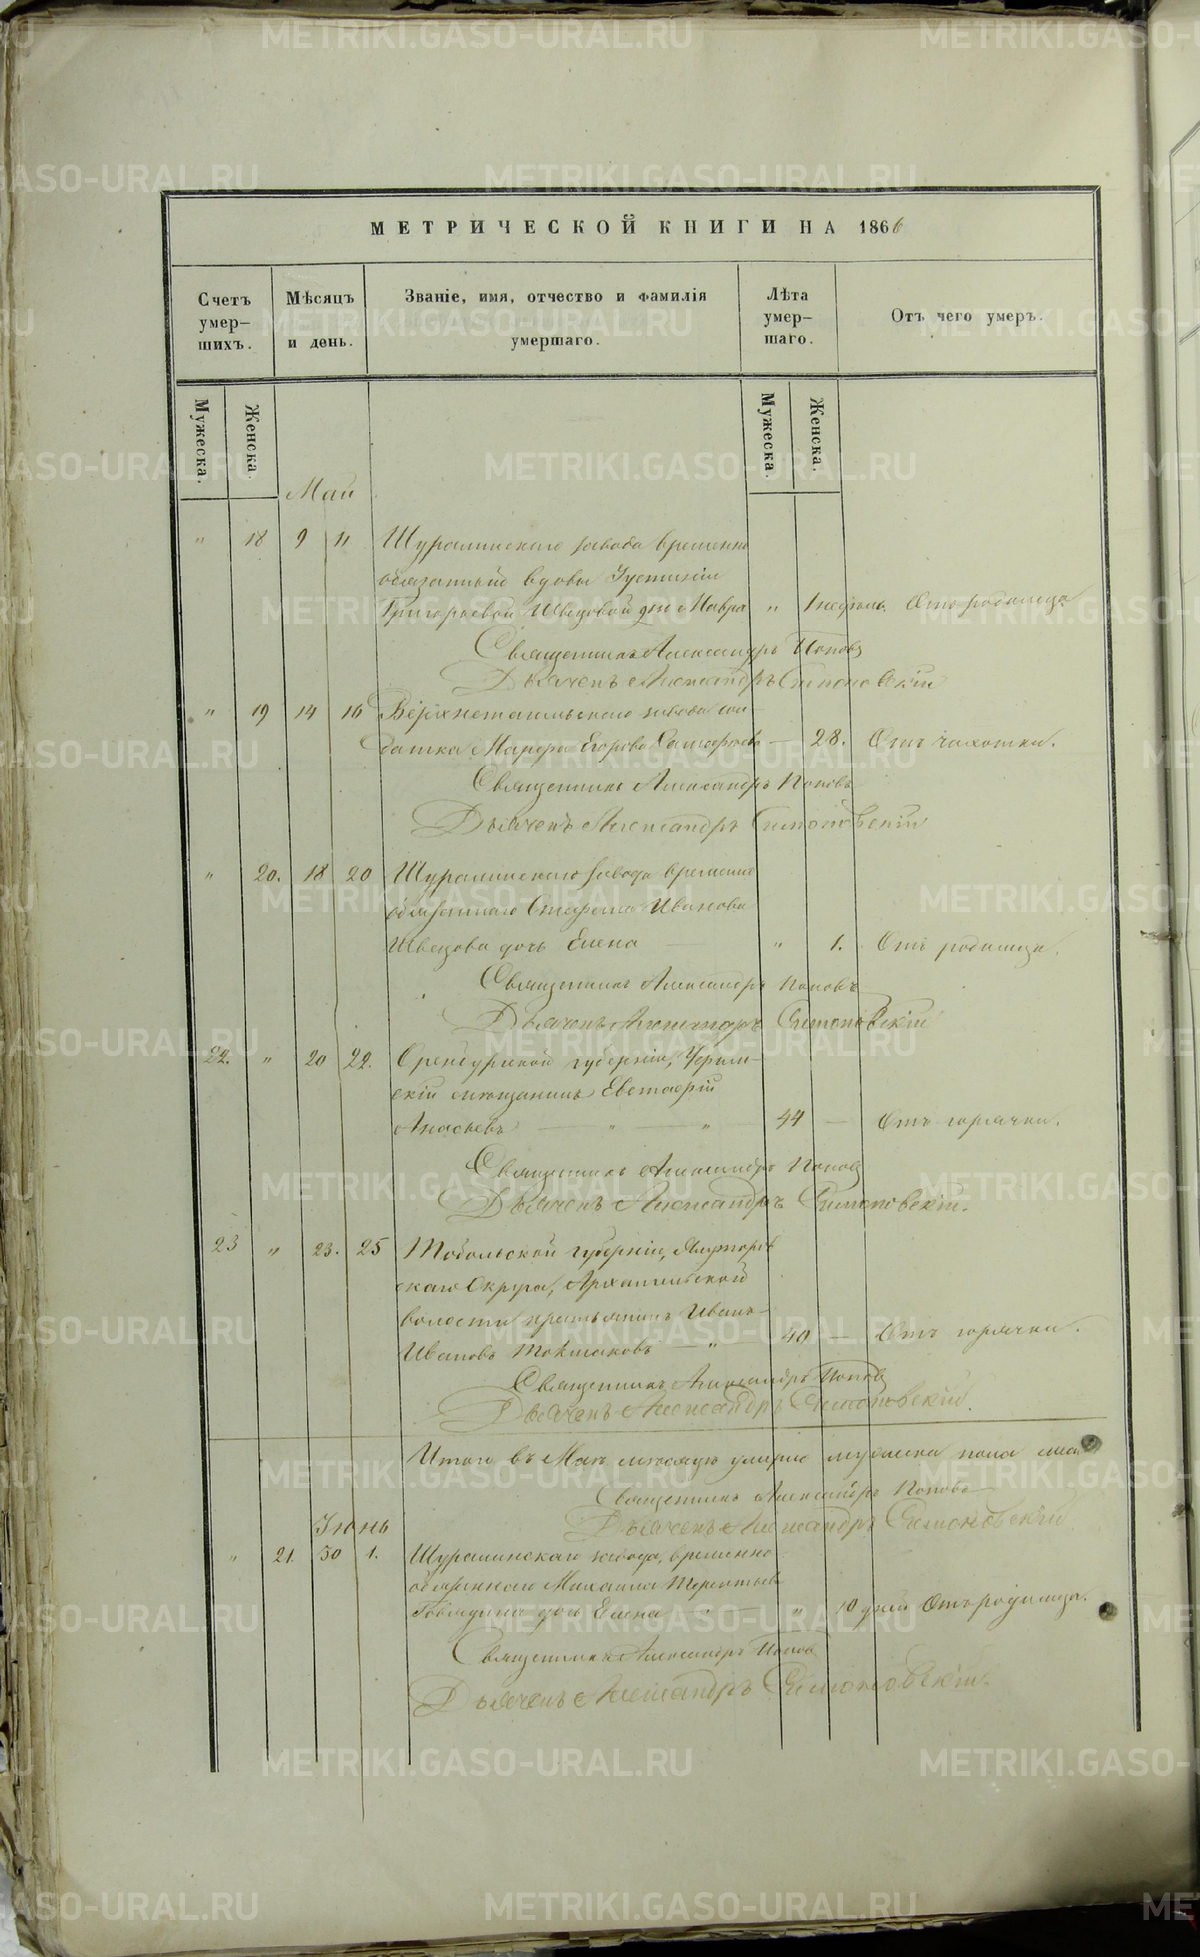 МЕТРИЧЕСКОЙ КНИГИ НА 1866
Счетъ умер-шихъ.
Мѣсяцъ и день.
Званіе, имя, отчество и фамилія умершаго.
Лѣта умер-шаго.
Отъ чего умеръ.
Мужеска.
Женска.
Мужеска.
Женска.
Май
" 18 9 11 Шуралинскаго завода временно
обязанной вдовы Іустиніи
Григорьевой Швецовой дочь Мавра " 1 недѣль. Отъ родимца
Священникъ Александръ Поповъ
Дьячекъ Александръ Симоновскій
" 19 14 16 Верхнетагильскаго завода сол-
датка Марфа Егорова — 28. Отъ чахотки.
Священникъ Александръ Поповъ
Дьячекъ Александръ Симоновскій
" 20. 18 20 Шуралинскаго завода временно
обязаннаго Иванова
Швецова дочь Елена " 1. Отъ родимца.
Священникъ Александръ Поповъ
Дьячекъ Александръ Симоновскій
22. " 20 22. Оренбургской губерніи,
скій мѣщанинъ Евстафій
— " — " — 44 — Отъ горячки.
Священникъ Александръ Поповъ
Дьячекъ Александръ Симоновскій.
23 " 23. 25 Тобольской губерніи, Ялуторов
скаго Округа, Архангельской
волости крестьянинъ Иванъ
Ивановъ — " — 40 — Отъ горячки.
Священникъ Александръ Поповъ
Дьячекъ Александръ Симоновскій.
Итого въ Маѣ мѣсяцѣ умерло мужеска пола
Священникъ Александръ Поповъ
Дьячекъ Александръ Симоновскій
Іюнь
" 21. 30 1. Шуралинскаго завода, временно
обязаннаго Михаила Терентьева
дочь Елена — " — " 10 дней Отъ родимца.
Священникъ Александръ Поповъ
Дьячекъ Александръ Симоновскій.
METRIKI.GASO-URAL.RU